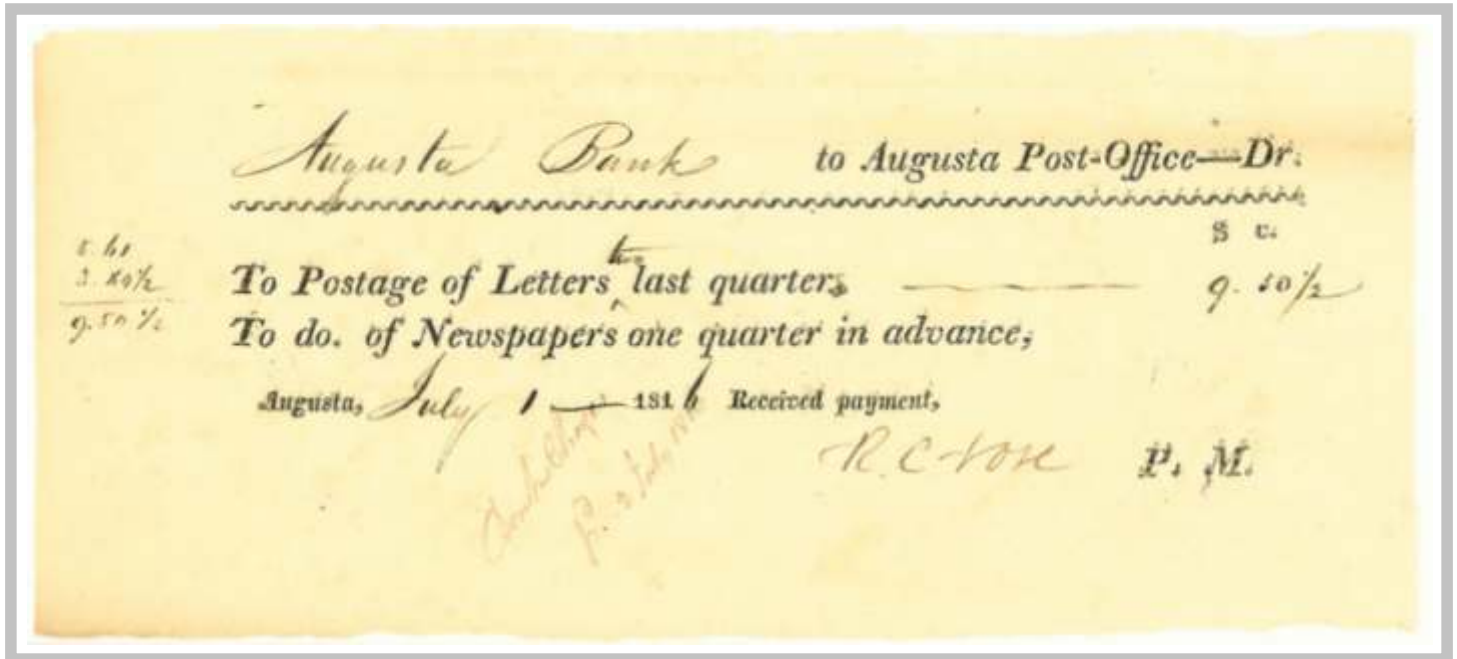 Augusta Bank to Augusta Post-Office—Dr.
$ c.
To Postage of Letters two last quarter, 9. 50½
3. 80½
9.50 ½
To do. of Newspapers one quarter in advance,
Augusta, July 1 — 1816 Received payment,
R. C. Vose P. M.